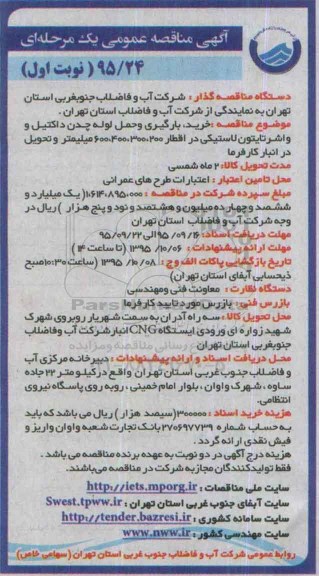 آگهی مناقصه عمومی یک مرحله‌ای
۹۵/۲۴ ( نوبت اول)
دستگاه مناقصه گذار : شرکت آب و فاضلاب جنوبغربی استان
تهران به نمایندگی از شرکت آب و فاضلاب استان تهران .
موضوع مناقصه :خرید، بارگیری وحمل لوله چدن داکتیل و
واشر تایتون لاستیکی در اقطار ۶۰۰،۴۰۰،۳۰۰،۲۰۰ میلیمتر و تحویل
در انبار کارفرما
مدت تحویل کالا: ۲ ماه شمسی
محل تامین اعتبار : اعتبارات طرح های عمرانی
مبلغ سپرده شرکت در مناقصه : ۱،۶۱۴،۸۹۵،۰۰۰( یک میلیارد و
ششصد وچهارده میلیون و هشتصد و نود و پنج هزار ) ریال در
وجه شرکت آب و فاضلاب استان تهران
مهلت دریافت اسناد: ۹۵/۰۹/۱۶ الی ۹۵/۰۹/۲۲
مهلت ارائه پیشنهادات : ۱۳۹۵/۱۰/۰۶ (تا ساعت ۱۴ )
تاریخ بازگشایی پاکات الف وج : ۱۳۹۵/۱۰/۰۸ (ساعت ۱۰:۳۰صبح
ذیحسابی آبفای استان تهران)
دستگاه نظارت : معاونت فنی ومهندسی
بازرس فنی : بازرس مورد تایید کارفرما
محل تحویل کالا : سه راه آدران به سمت شهریار روبروی شهرک
شهید زواره ای ورودی ایستگاه CNG انبار شرکت آب وفاضلاب
جنوبغربی استان تهران
محل دریافت اسناد و ارائه پیشنهادات : دبیرخانه مرکزی آب
و فاضلاب جنوب غربی استان تهران واقع در کیلومتر ۲۲ جاده
ساوه ، شهرک واوان ، بلوار امام خمینی ، روبه روی پاسگاه نیروی
انتظامی.
هزینه خرید اسناد : ۳۰۰۰۰۰(سیصد هزار ) ریال می باشد که باید
به حساب شماره ۲۷۰۶۹۷۷۳۹ بانک تجارت شعبه واوان واریز و
فیش نقدی ارائه گردد .
هزینه درج آگهی در دو نوبت به عهده برنده مناقصه می باشد.
فقط تولیدکنندگان مجاز به شرکت در مناقصه می‌باشند.
سایت ملی مناقصات : http://iets.mporg.ir
سایت آبفای جنوب غربی استان تهران : Swest.tpww.ir
سایت سامانه کشوری : http://tender.bazresi.ir
سایت مهندسی کشور : www.nww.ir
روابط عمومی شرکت آب و فاضلاب جنوب غربی استان تهران (سهامی خاص)